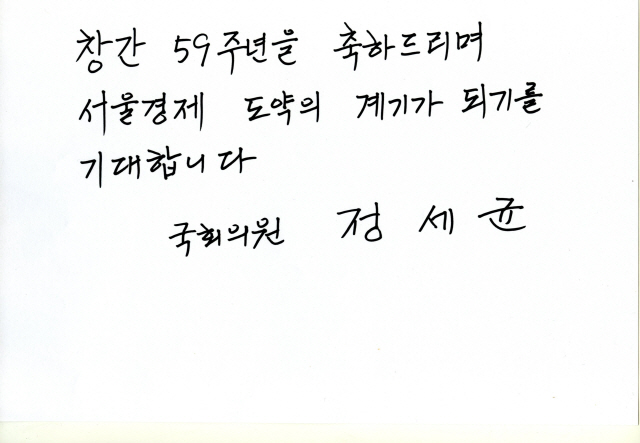 창간 59주년을 축하드리며
서울경제 도약의 계기가 되기를
기대합니다
국회의원 정세균